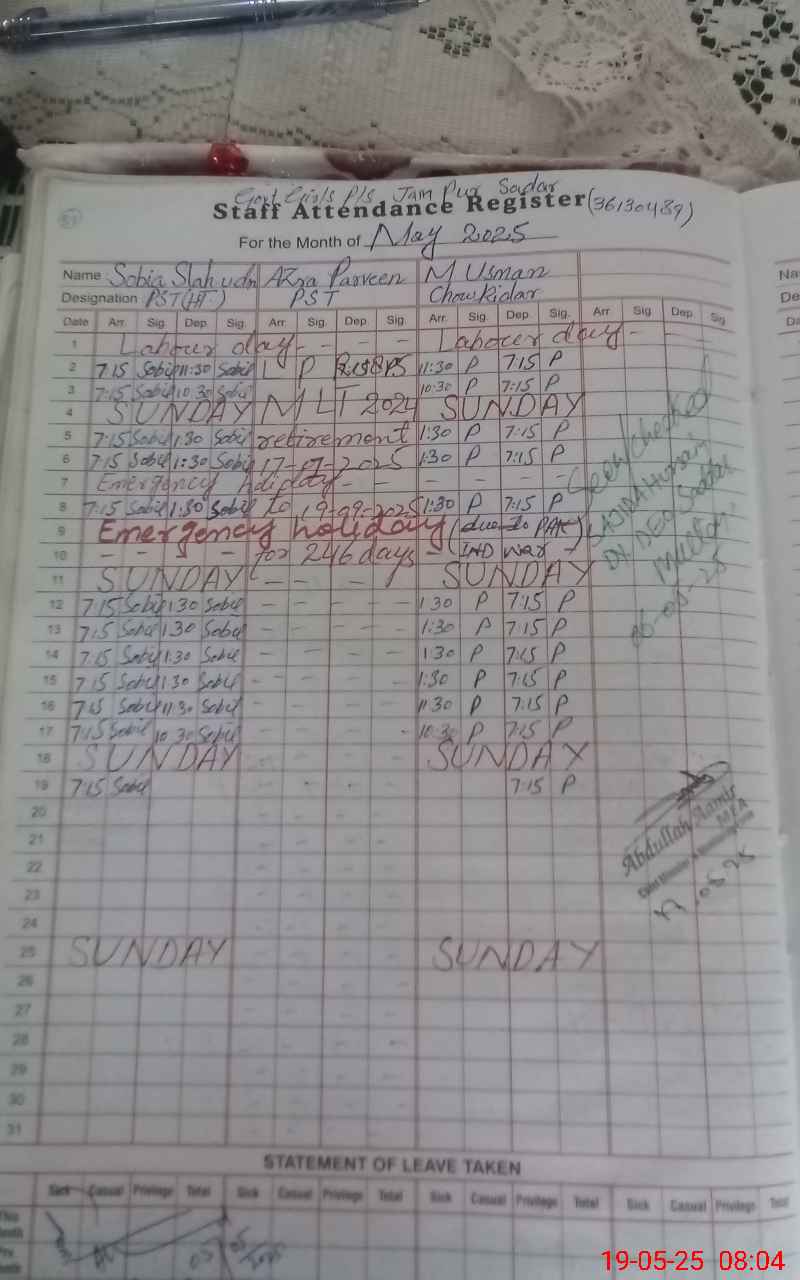 Govt Girls P/S Jam Pur Sadar
Staff Attendance Register (36130489)
For the Month of May 2025
Name Sobia Slah udn AZra Parveen M Usman
Designation PST (HT) PST ChowKidar
Date Arr. Sig. Dep. Sig. Arr. Sig. Dep. Sig. Arr. Sig. Dep. Sig. Arr. Sig. Dep. Sig
1 Labour day - - - - Labour day -
2 7:15 Sobil 11:30 Sobil L P 11:30 P 7:15 P
3 7:15 Sobil 10:30 Sobil 10:30 P 7:15 P
4 SUNDAY MLT 2024 SUNDAY
5 7:15 Sobil 1:30 Sobil retirement 1:30 P 7:15 P
6 7:15 Sobil 1:30 Sobil 17-07-2025 1:30 P 7:15 P
7 Emergency holiday - - - - - -
8 7:15 Sobil 1:30 Sobil to 19-09-2025 1:30 P 7:15 P
9 Emergency holiday (due to PAK
10 - - - - for 246 days - (IND war -
11 SUNDAY - - - SUNDAY
12 7:15 Sobil 1:30 Sobil - - - - 1:30 P 7:15 P
13 7:15 Sobil 1:30 Sobil - - - - 1:30 P 7:15 P
14 7:15 Sobil 1:30 Sobil - - - - 1:30 P 7:15 P
15 7:15 Sobil 1:30 Sobil - - - - 1:30 P 7:15 P
16 7:15 Sobil 11:30 Sobil - - - - 11:30 P 7:15 P
17 7:15 Sobil 10:30 Sobil - - - - 10:30 P 7:15 P
18 SUNDAY SUNDAY
19 7:15 Sobil 7:15 P
20
21
22
23
24
25 SUNDAY SUNDAY
26
27
28
29
30
31
Seen/Checked
SAJIDA Hussain
Dy. DEO Saddar
Multan
06-05-25
Abdullah Aamir
MEA
17.05.25
STATEMENT OF LEAVE TAKEN
Sick Casual Privilege Total Sick Casual Privilege Total Sick Casual Privilege Total Sick Casual Privilege Total
19-05-25 08:04